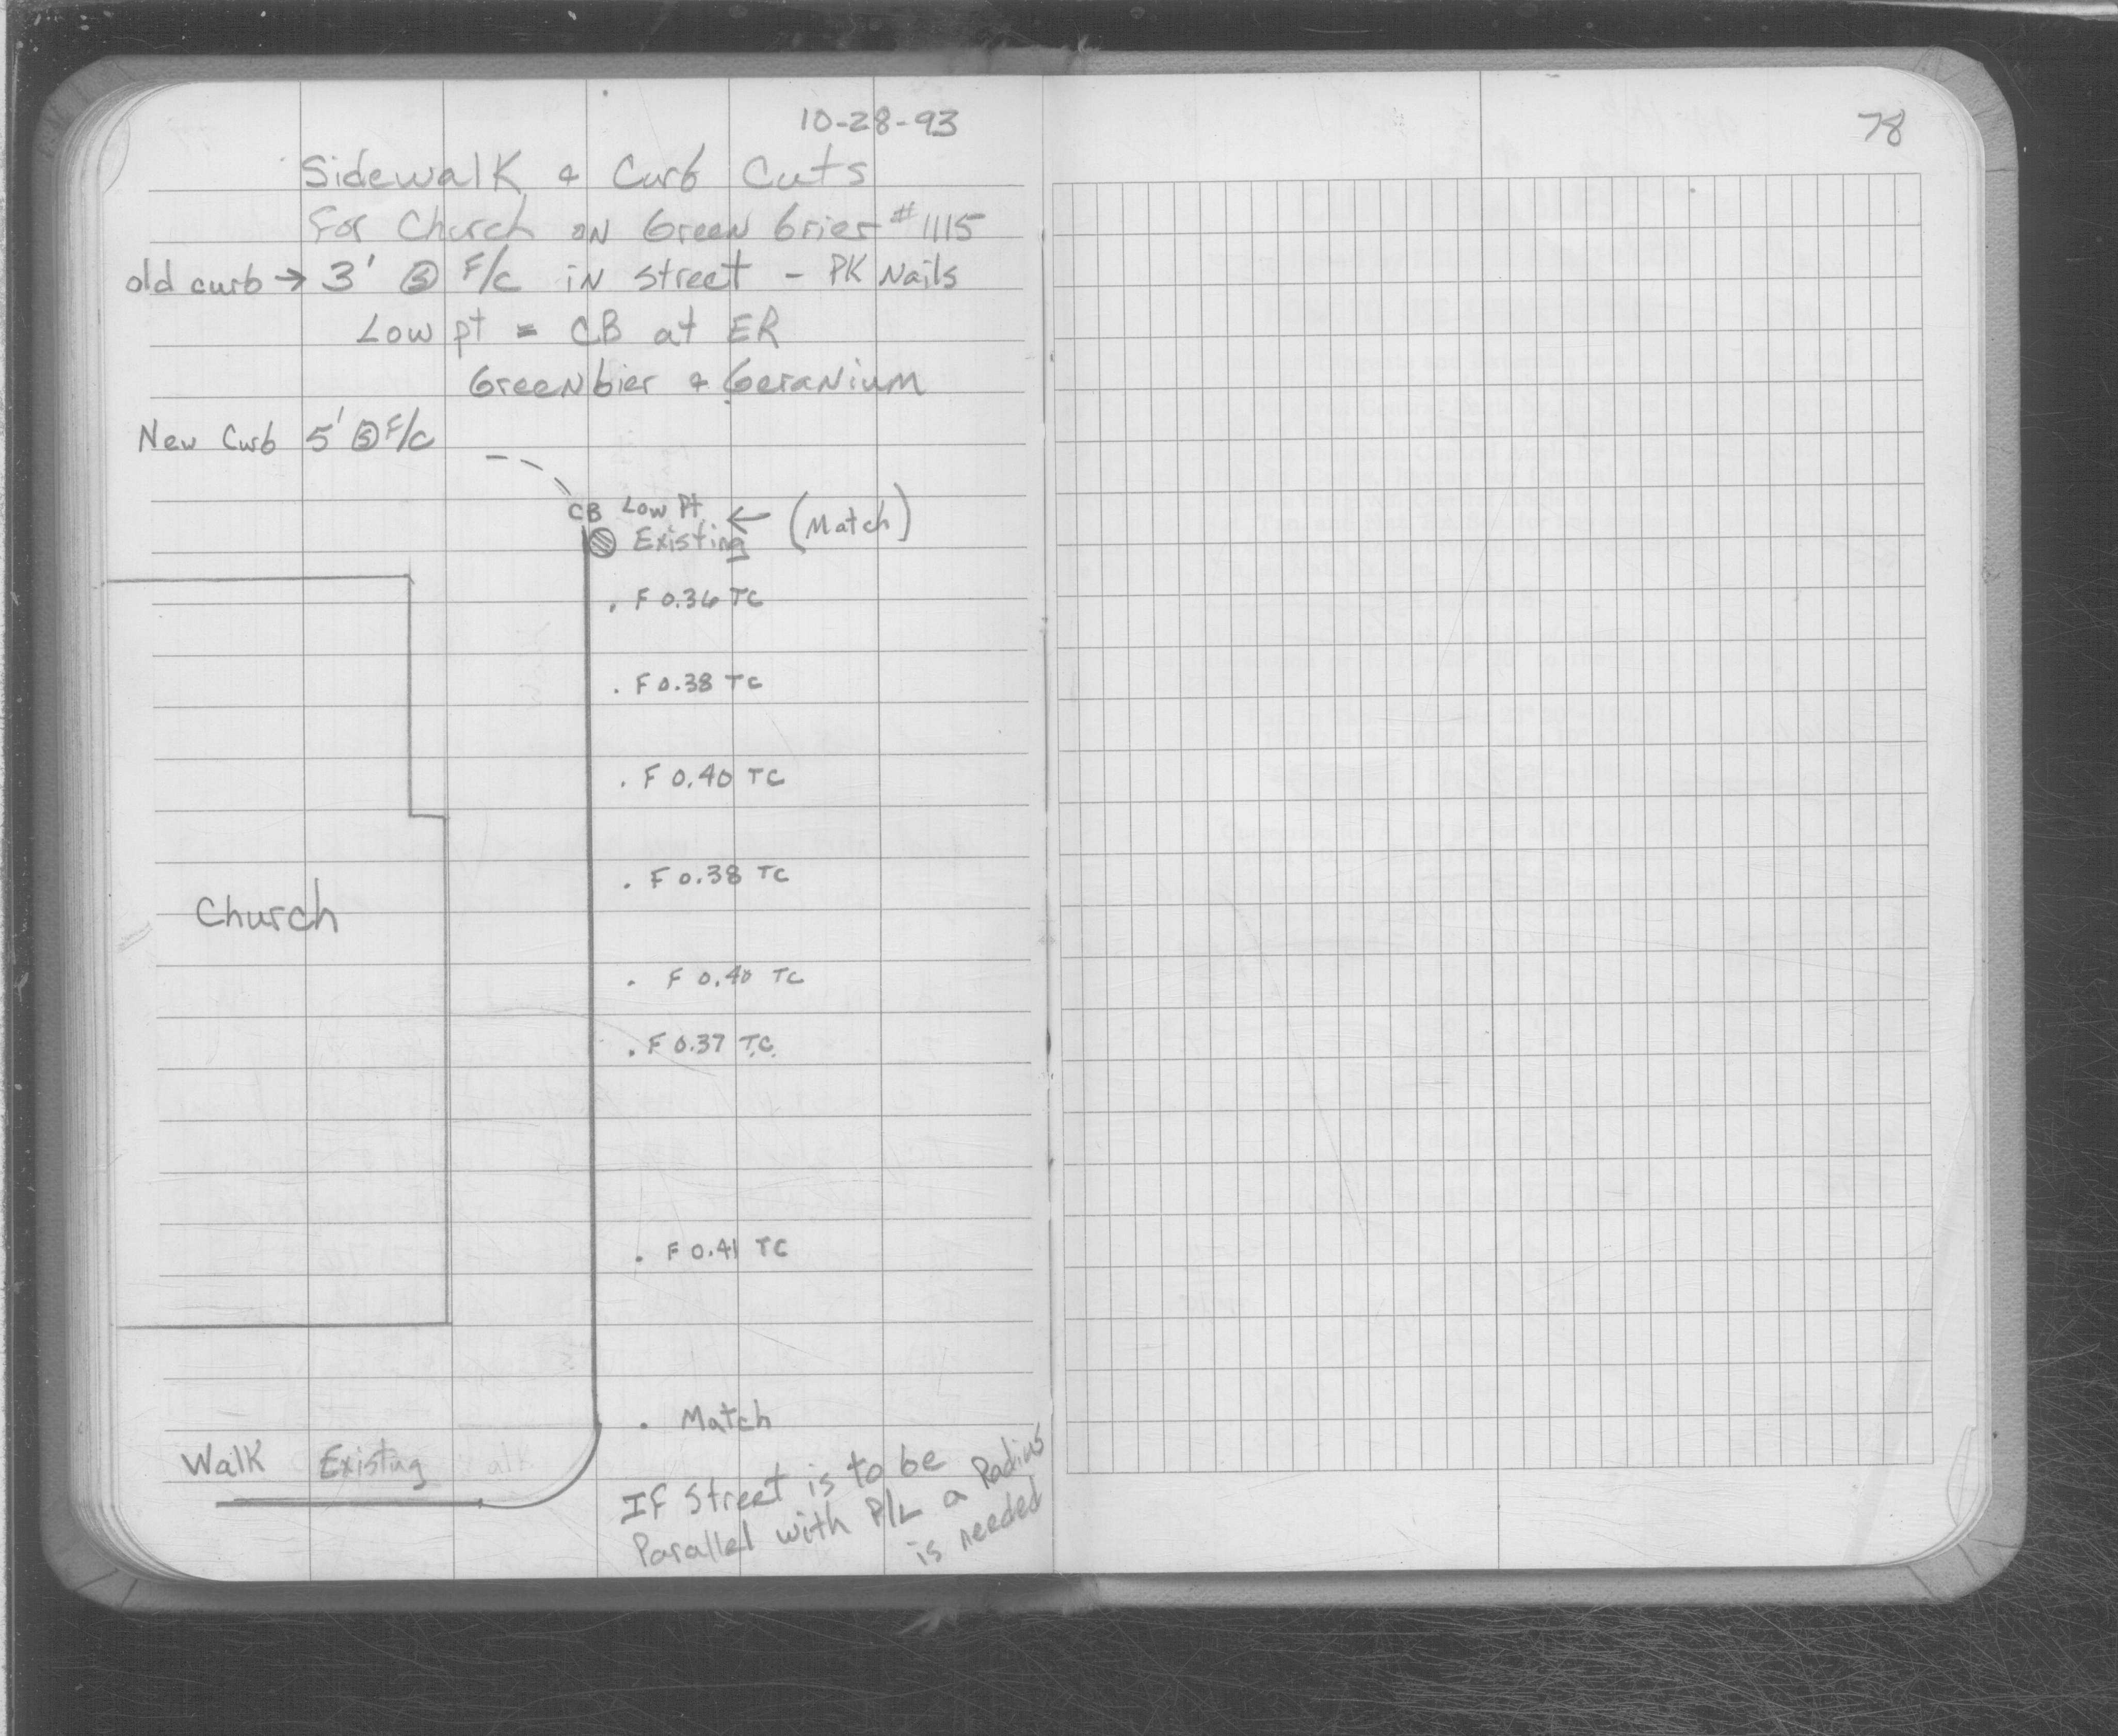 10-28-93
78
Sidewalk & Curb Cuts
For Church on Green brier #1115
old curb → 3' Ⓢ F/C in street - PK Nails
Low pt = CB at ER
Greenbier & Geranium
New Curb 5' Ⓢ F/C
CB Low Pt ← (Match)
Existing
. F 0.36 TC
. F 0.38 TC
. F 0.40 TC
. F 0.38 TC
Church
. F 0.40 TC
. F 0.37 TC
. F 0.41 TC
. Match
Walk Existing
If Street is to be
Parallel with P/L a Radius
is needed